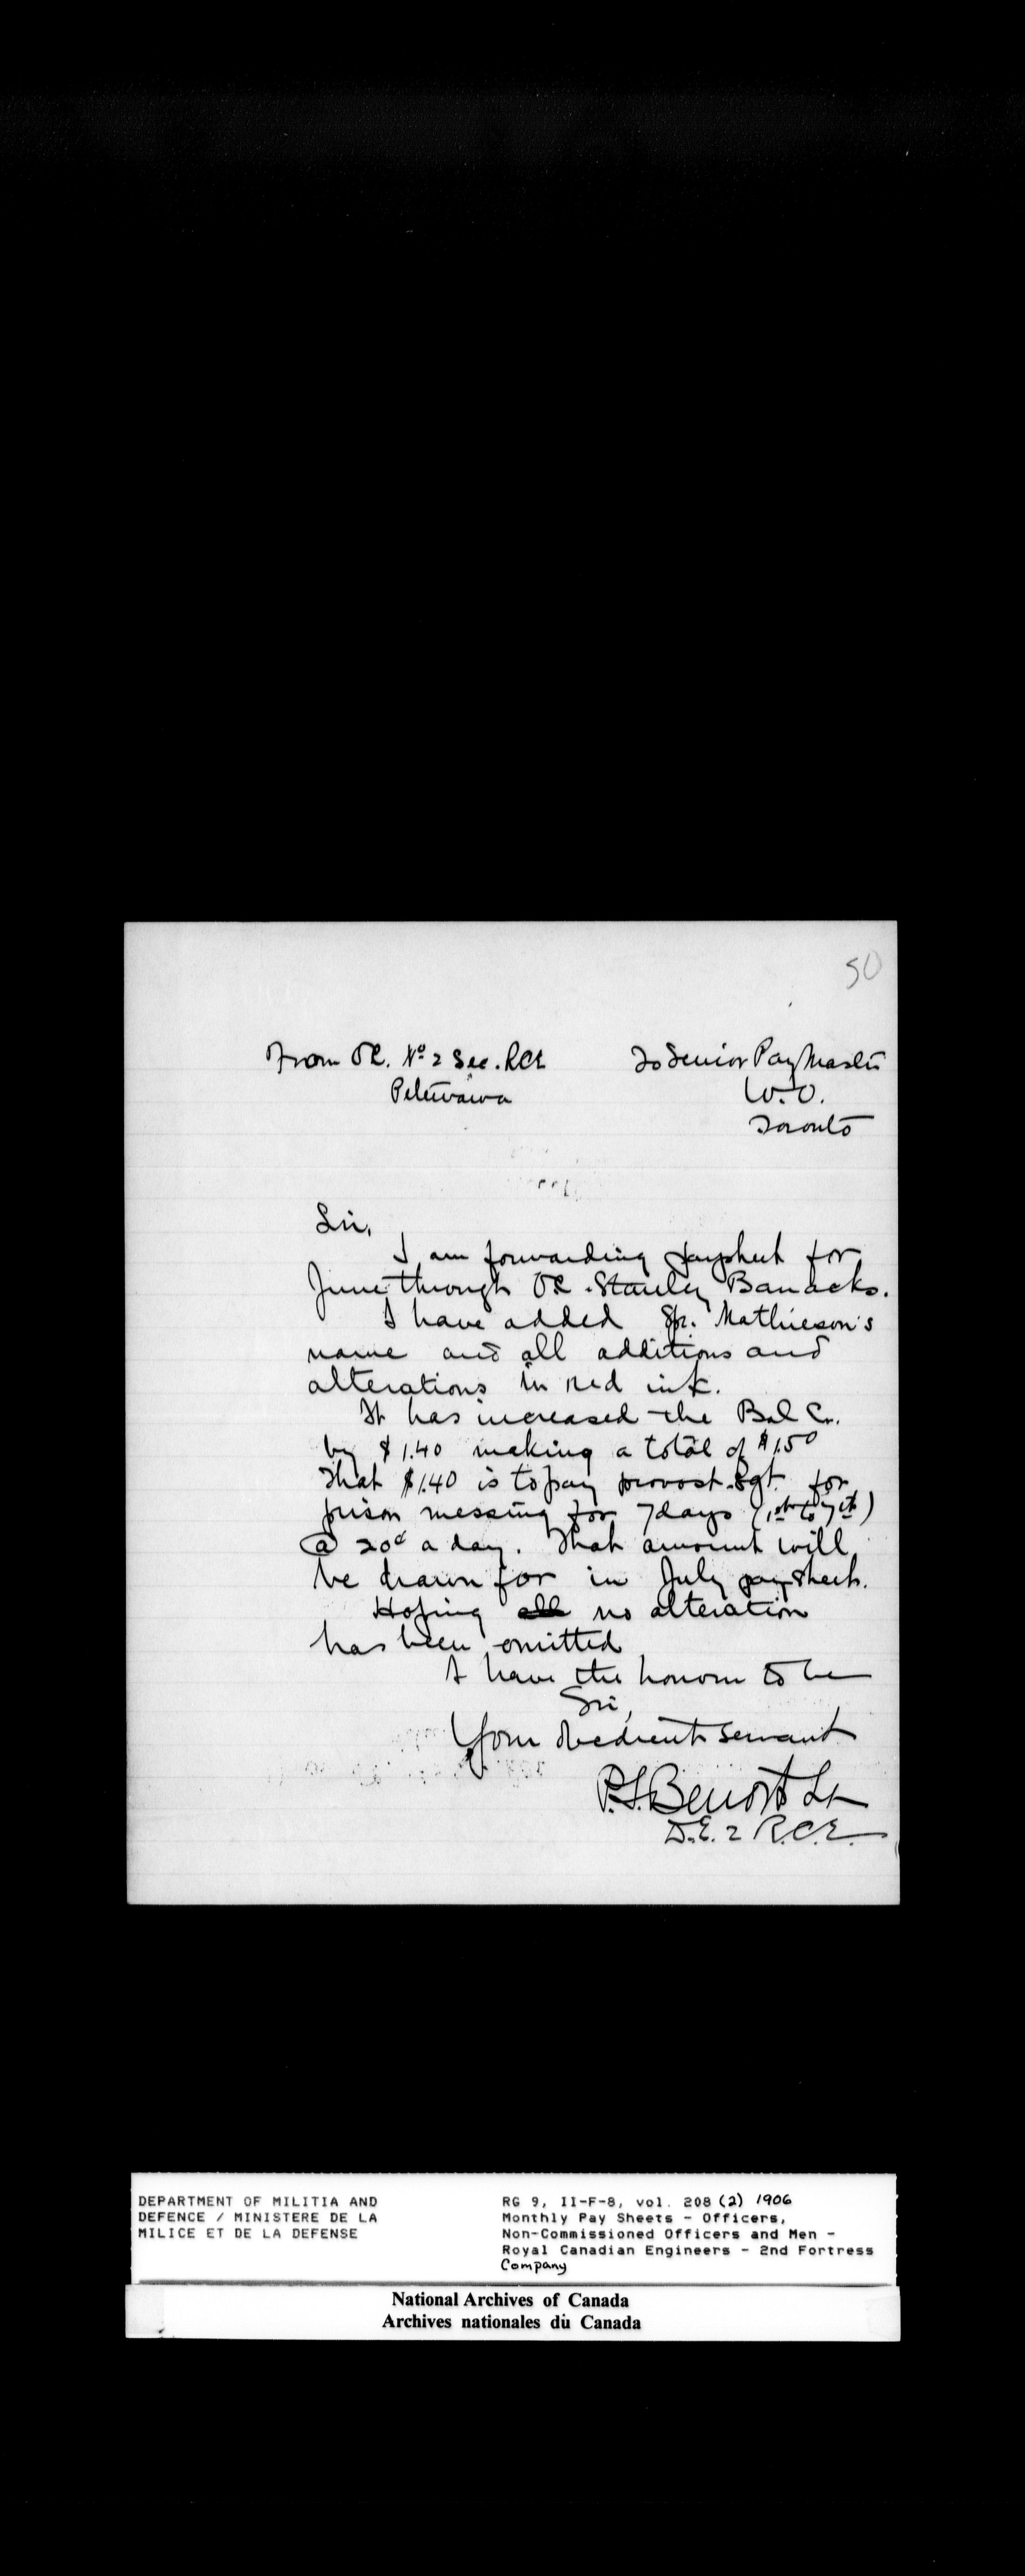 50
From OC. Nº 2 Sec. RCE
Petewawa
To Senior Pay Master
W.O.
Toronto
Sir,
I am forwarding paysheet for
June through OC. Stanley Barracks.
I have added Spr. Mathieson's
name and all additions and
alterations in red ink.
It has increased the Bal Cr.
by $1.40 making a total of $1.50
That $1.40 is to pay provost-Sgt. for
prison messing for 7 days (1st to 7th)
@ 20c a day. That amount will
be drawn for in July pay sheet.
Hoping all no alteration
has been omitted
I have the honour to be
Sir,
Your obedient servant
P.S. Benoit Lt
D.E. 2 R.C.E.
DEPARTMENT OF MILITIA AND
DEFENCE / MINISTERE DE LA
MILICE ET DE LA DEFENSE
RG 9, II-F-8, vol. 208 (2) 1906
Monthly Pay Sheets - Officers,
Non-Commissioned Officers and Men -
Royal Canadian Engineers - 2nd Fortress
Company
National Archives of Canada
Archives nationales du Canada